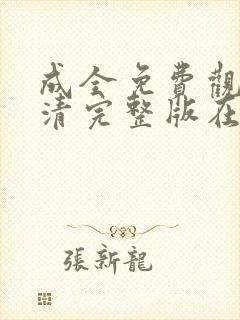 成全免費觀
清完整版在
張新龍